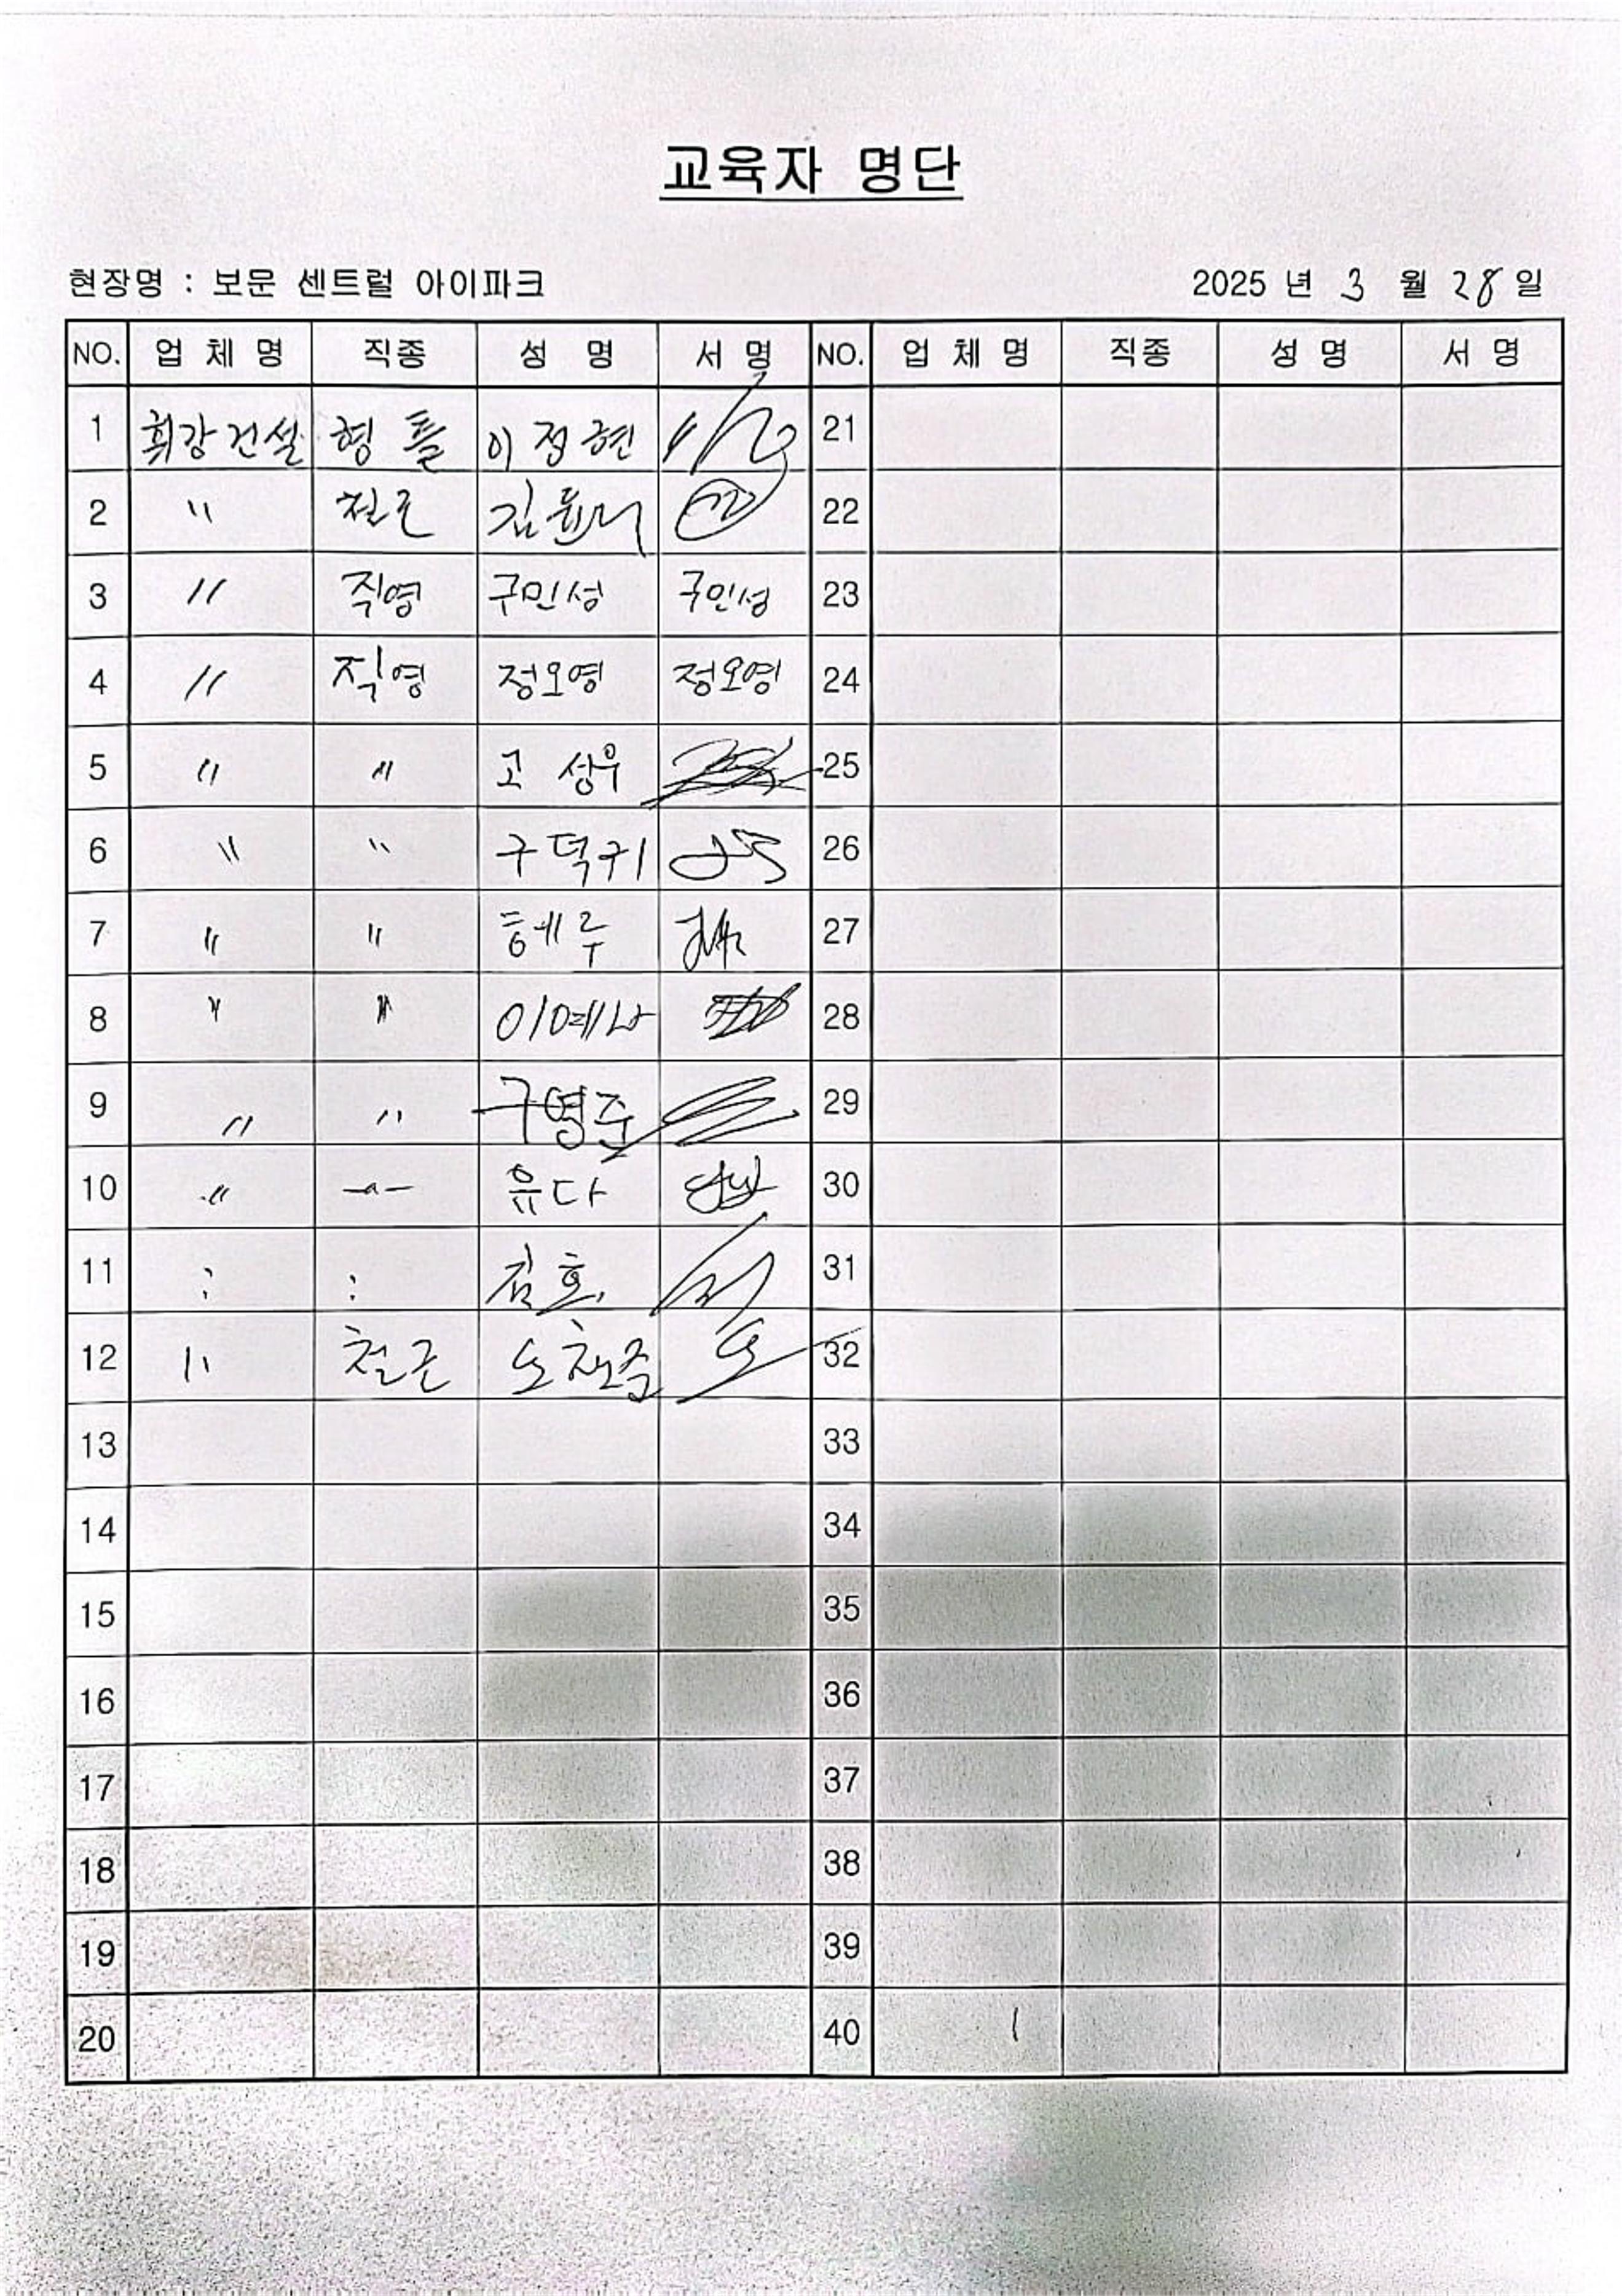 교육자 명단
현장명 : 보문 센트럴 아이파크 2025 년 3 월 28 일
NO. 업 체 명 직종 성 명 서 명 NO. 업 체 명 직종 성 명 서 명
1 휘강건설 형틀 이정현 21
2 〃 철근 김 22
3 〃 직영 구민성 구민성 23
4 〃 직영 정오영 정오영 24
5 〃 〃 고성우 25
6 〃 〃 구덕귀 26
7 〃 〃 헤루 27
8 〃 〃 이예나 28
9 〃 〃 구영준 29
10 〃 -〃- 유다 30
11 : : 김호 31
12 〃 철근 32
13 33
14 34
15 35
16 36
17 37
18 38
19 39
20 40